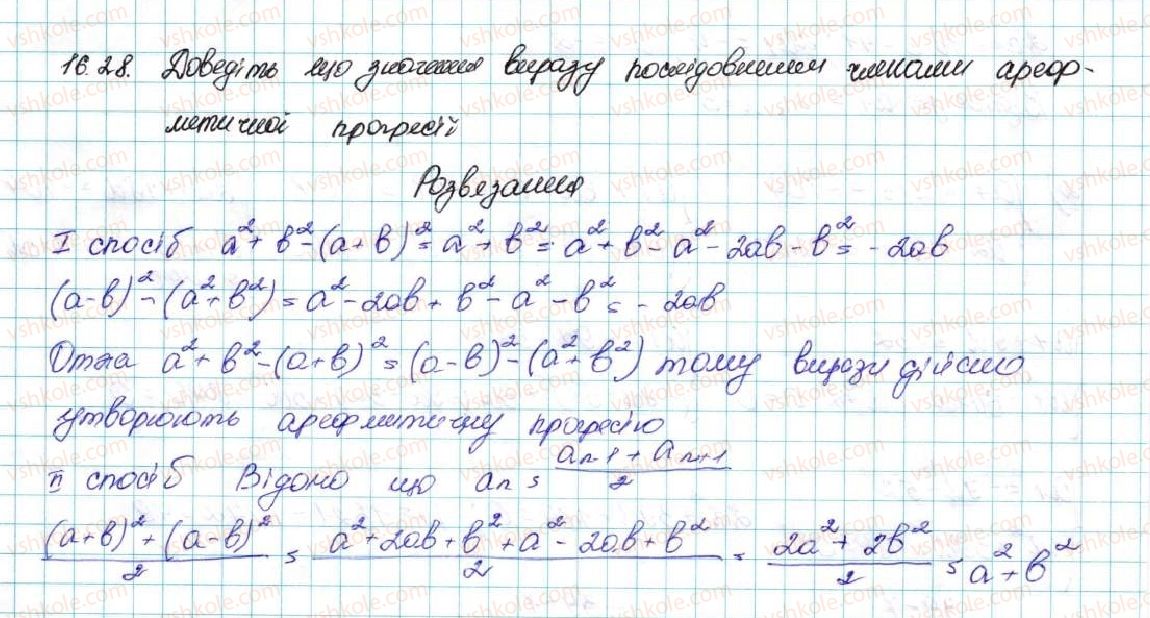 16.28. Доведіть що значення виразу послідовними членами ареф-
метичної прогресії
Розвязання
I спосіб a² + b² - (a + b)² = a² + b² = a² + b² - a² - 2ab - b² = - 2ab
(a - b)² - (a² + b²) = a² - 2ab + b² - a² - b² = - 2ab
Отже a² + b² - (a + b)² = (a - b)² - (a² + b²) тому вирази дійсно
утворюють арефметичну прогресію
II спосіб Відомо що an = (an-1 + an+1)/2
((a + b)² + (a - b)²)/2 = (a² + 2ab + b² + a² - 2ab + b²)/2 = (2a² + 2b²)/2 = a² + b²